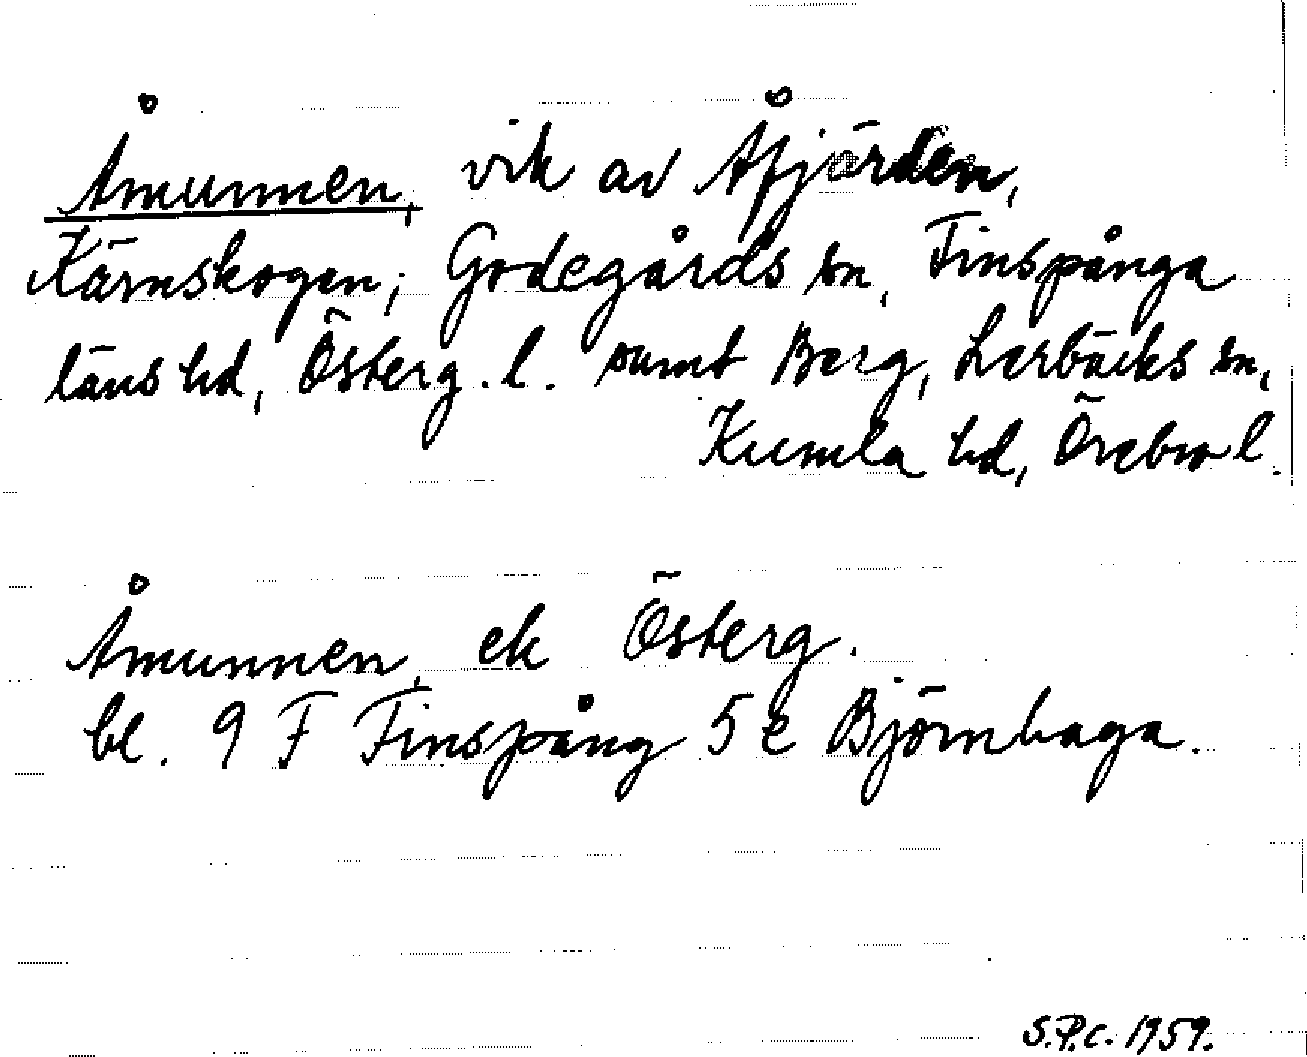 Åmunnen, vik av Åfjärden,
Kärnskogen, Godegårds sn, Finspånga
läns hd, Österg. l. samt Berg, Lerbäcks sn,
Kumla hd, Örebro l.
Åmunnen, ek Österg.
bl. 9 F Finspång 5 e Björnhaga.
S.P.C. 1959.